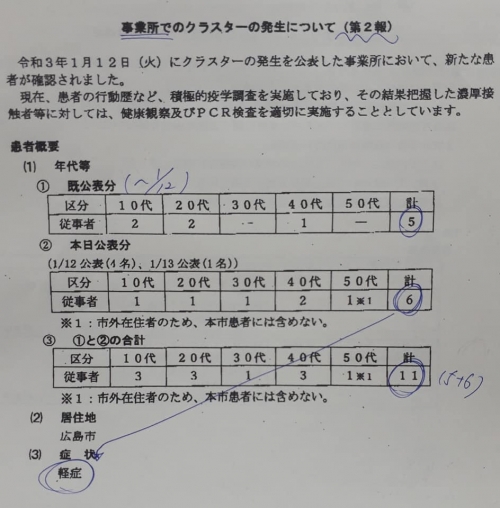 事業所でのクラスターの発生について(第2報)
令和3年1月12日(火)にクラスターの発生を公表した事業所において、新たな患
者が確認されました。
現在、患者の行動歴など、積極的疫学調査を実施しており、その結果把握した濃厚接
触者等に対しては、健康観察及びPCR検査を適切に実施することとしています。
患者概要
(1) 年代等
① 既公表分 (~1/12)
区分 10代 20代 30代 40代 50代 計
従事者 2 2 - 1 - 5
② 本日公表分
(1/12公表(4名)、1/13公表(1名))
区分 10代 20代 30代 40代 50代 計
従事者 1 1 1 2 1※1 6
※1:市外在住者のため、本市患者には含めない。
③ ①と②の合計
区分 10代 20代 30代 40代 50代 計
従事者 3 3 1 3 1※1 11 (5+6)
※1:市外在住者のため、本市患者には含めない。
(2) 居住地
広島市
(3) 症状
軽症